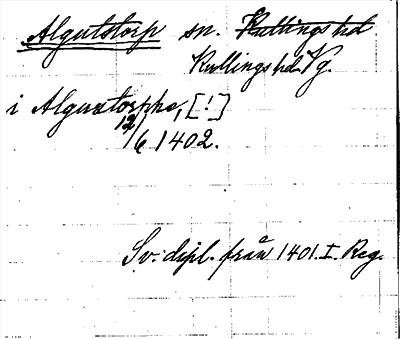 Algutstorp sn. Kullings hd
Kullings hd. Vg.
i Alguxtorpha, [!]
12/6 1402.
Sv. dipl. från 1401. I. Reg.